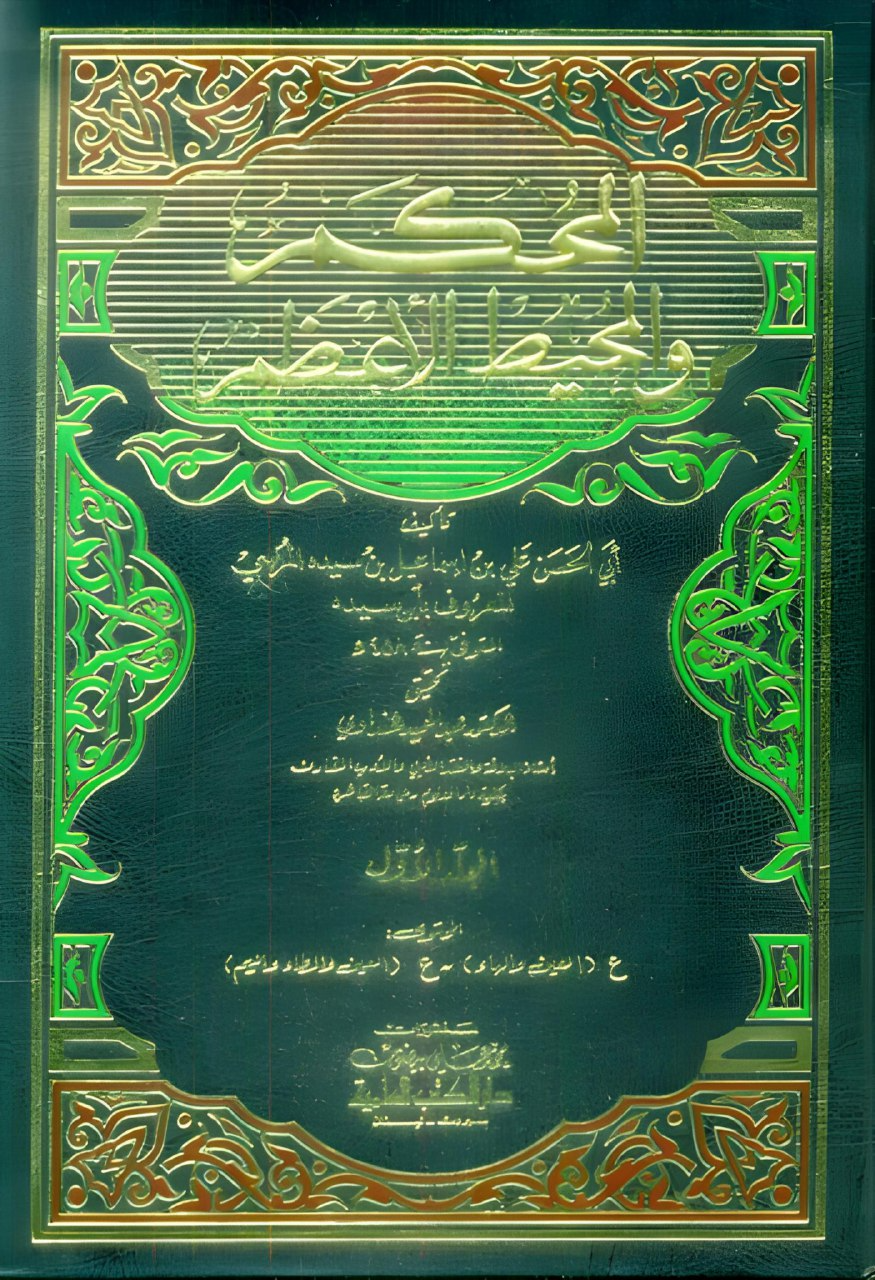 المحكم
والمحيط الأعظم
تأليف
أبي الحسن علي بن إسماعيل بن سيده المرسي
المعروف بابن سيده
المتوفى سنة ٤٥٨ ه
تحقيق
الدكتور عبد الحميد هنداوي
المجلد الأول
المحتوى:
ع (العين والهاء) - ع (العين والطاء والميم)
منشورات
محمد علي بيضون
دار الكتب العلمية
بيروت - لبنان